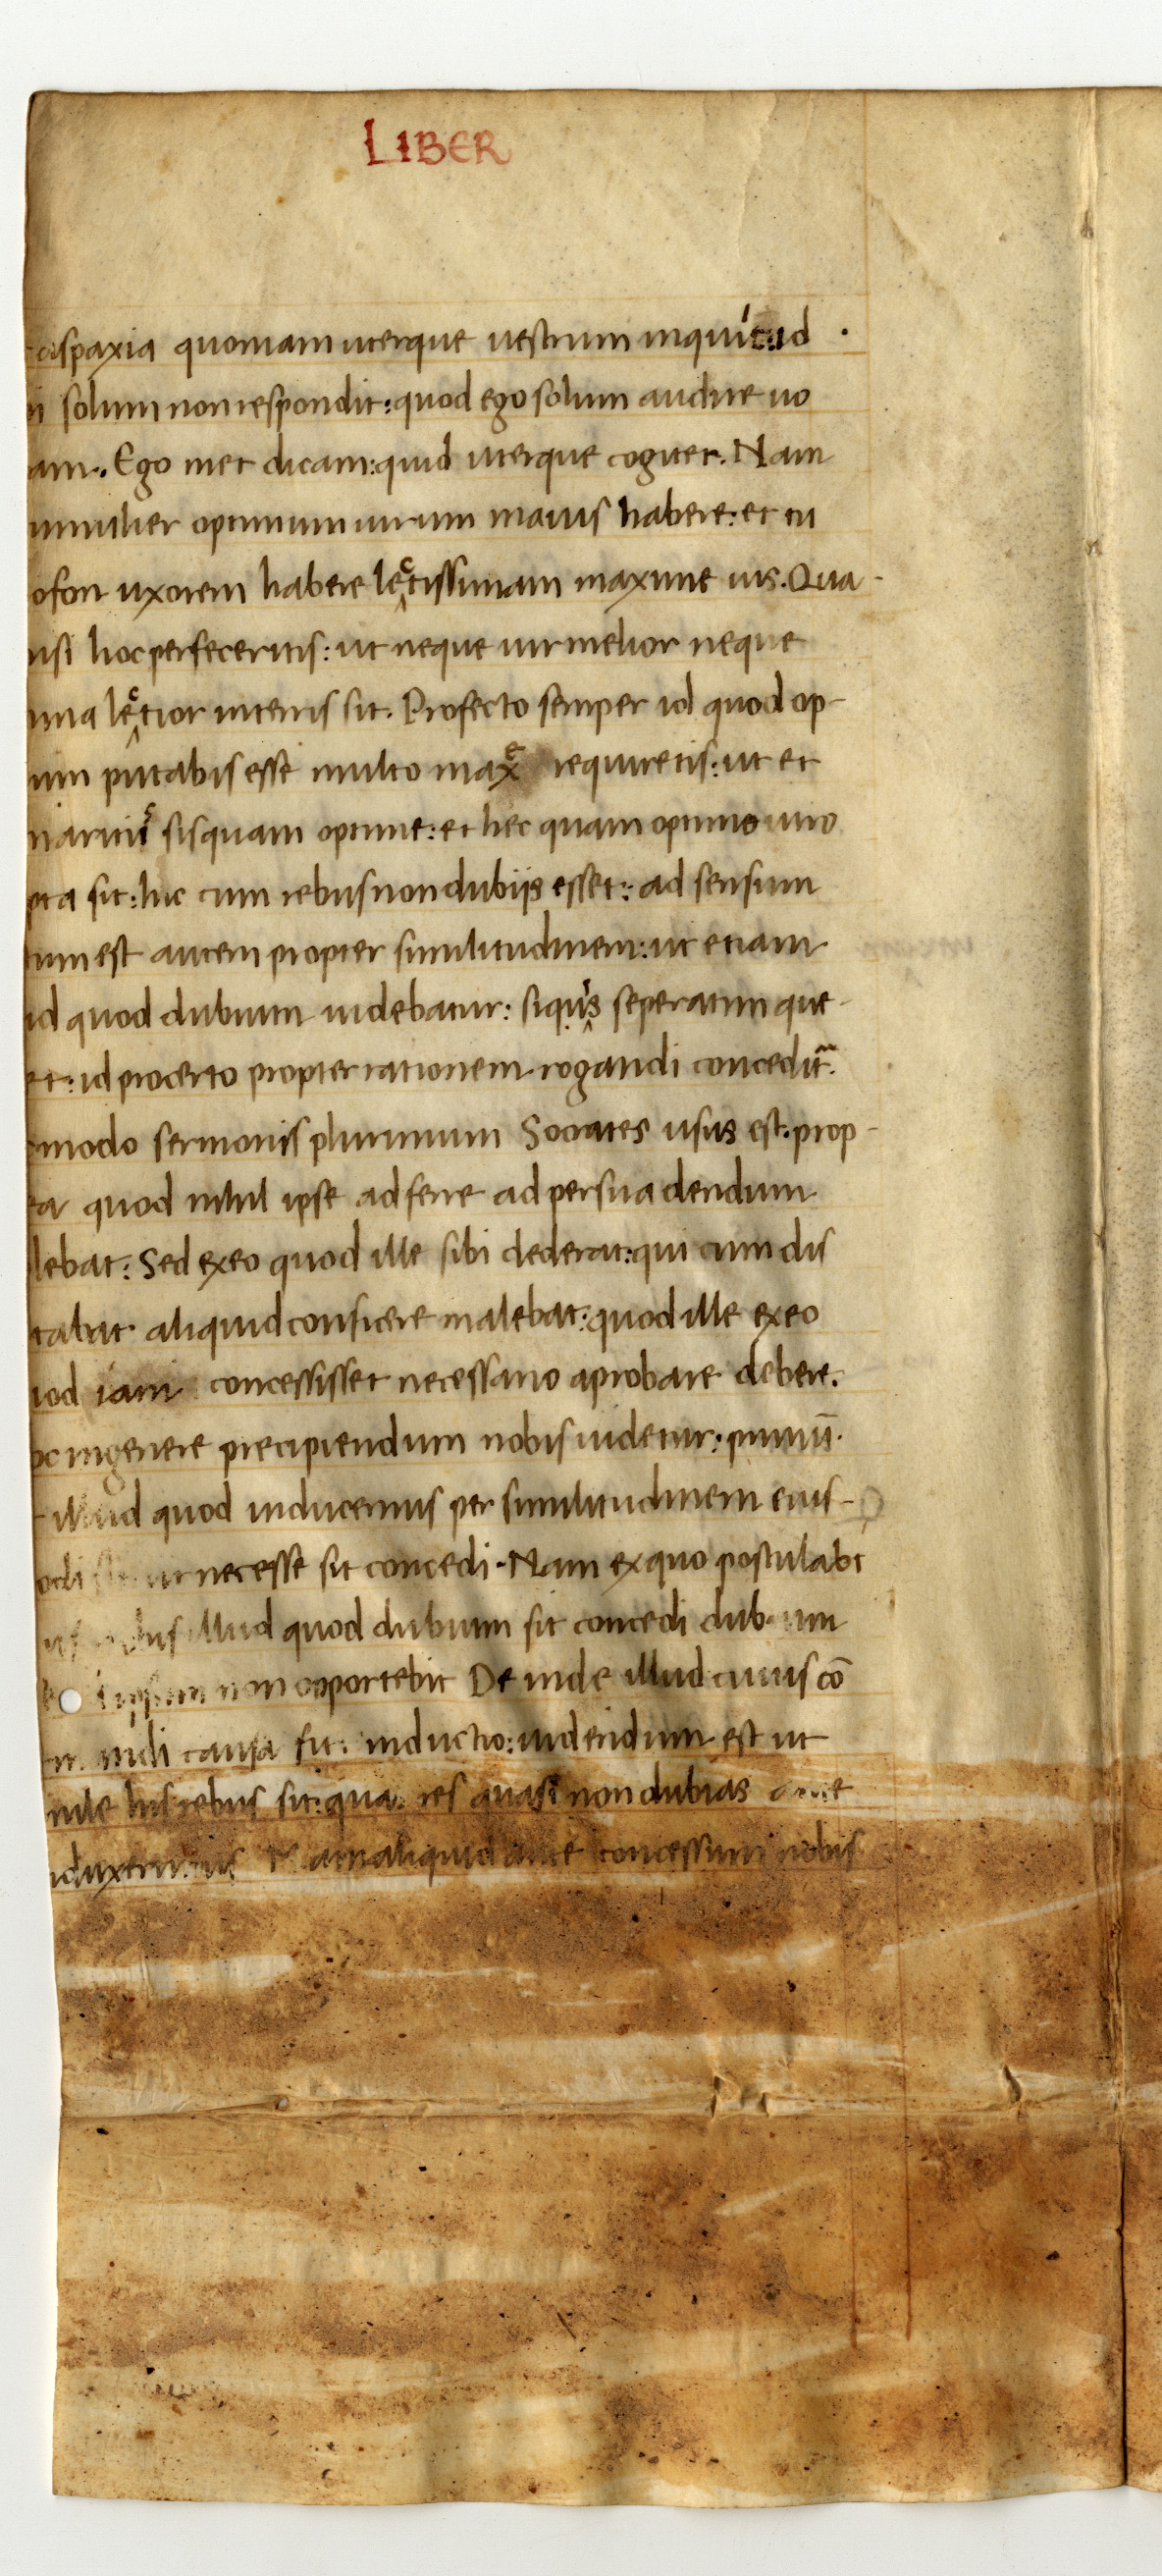 LIBER
aspaxia quoniam uterque uestrum inquit: id
i solum non respondit: quod ego solum audire uo
am. Ego met dicam: quid uterque cogitet. Nam
mulier optimum uirum mauis habere: et tu
ofon uxorem habere lectissimam maxime uis. Qua-
nsi hoc perfeceritis: ut neque uir melior neque
mina lectior interris sit. Profecto semper id quod op-
um putabis esse multo maxe requiretis: ut et
maritus sis quam optime: et hec quam optimo uiro
pta sit: hic cum rebus non dubiis esset: ad sensum
tum est autem propter similitudinem: ut etiam
id quod dubium uidebatur: siquis seperatim que-
et: id procerto propter rationem rogandi concedit̃.
modo sermonis plurimum Socrates usus est. prop-
ea quod nihil ipse adferre ad persuadendum
lebat: Sed exeo quod ille sibi dederat: qui cum dis
tabat aliquid conficere malebat: quod ille exeo
uod iam concessisset necessario aprobare debere.
oc ingenere precipiendum nobis uidetur: primū.
illud quod inducemus per similitudinem eius-
odi ut necesse sit concedi. Nam exquo postulabt
illud quod dubium sit concedi dubium
ipsum non opportebit De inde illud cuius cō
ndi causa fit. inductio: uidendum est ut
mile his rebus sit: qua. res quasi non dubias ante
nduxerimus Nam aliquid ante concessum nobis